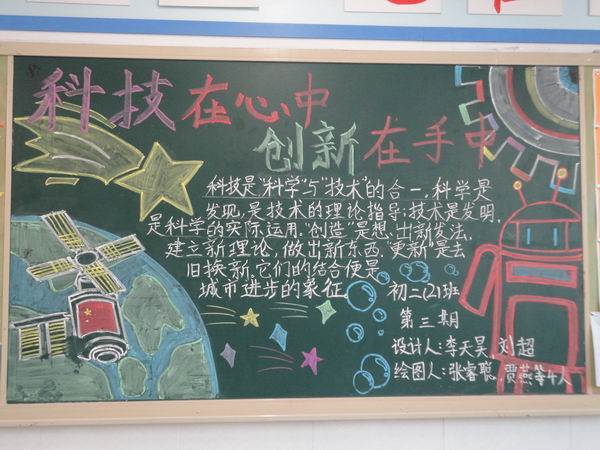 科技在心中
创新在手中
科技是“科学”与“技术”的合一,科学是
发现,是技术的理论指导;技术是发明,
是科学的实际运用。“创造”是想出新发法,
建立新理论,做出新东西。“更新”是去
旧换新。它们的结合便是
城市进步的象征。
初二(2)班
第三期
设计人:李天昊,刘超
绘图人:张睿聪,贾燕等4人